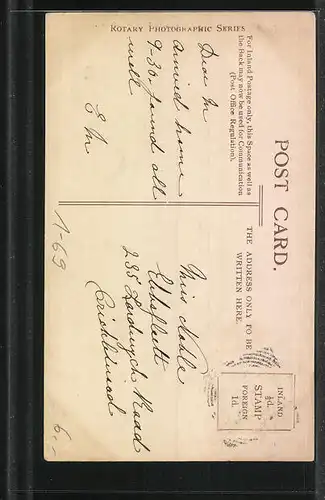 ROTARY PHOTOGRAPHIC SERIES
POST CARD.
For Inland Postage only, this Space as well as
the Back may now be used for Communication
(Post Office Regulation).
THE ADDRESS ONLY TO BE
WRITTEN HERE.
INLAND
½d.
STAMP
FOREIGN
1d.
Dear M
arrived home
9-30. found all
well
E M
Miss Noble
235 Road
11-69
6,-